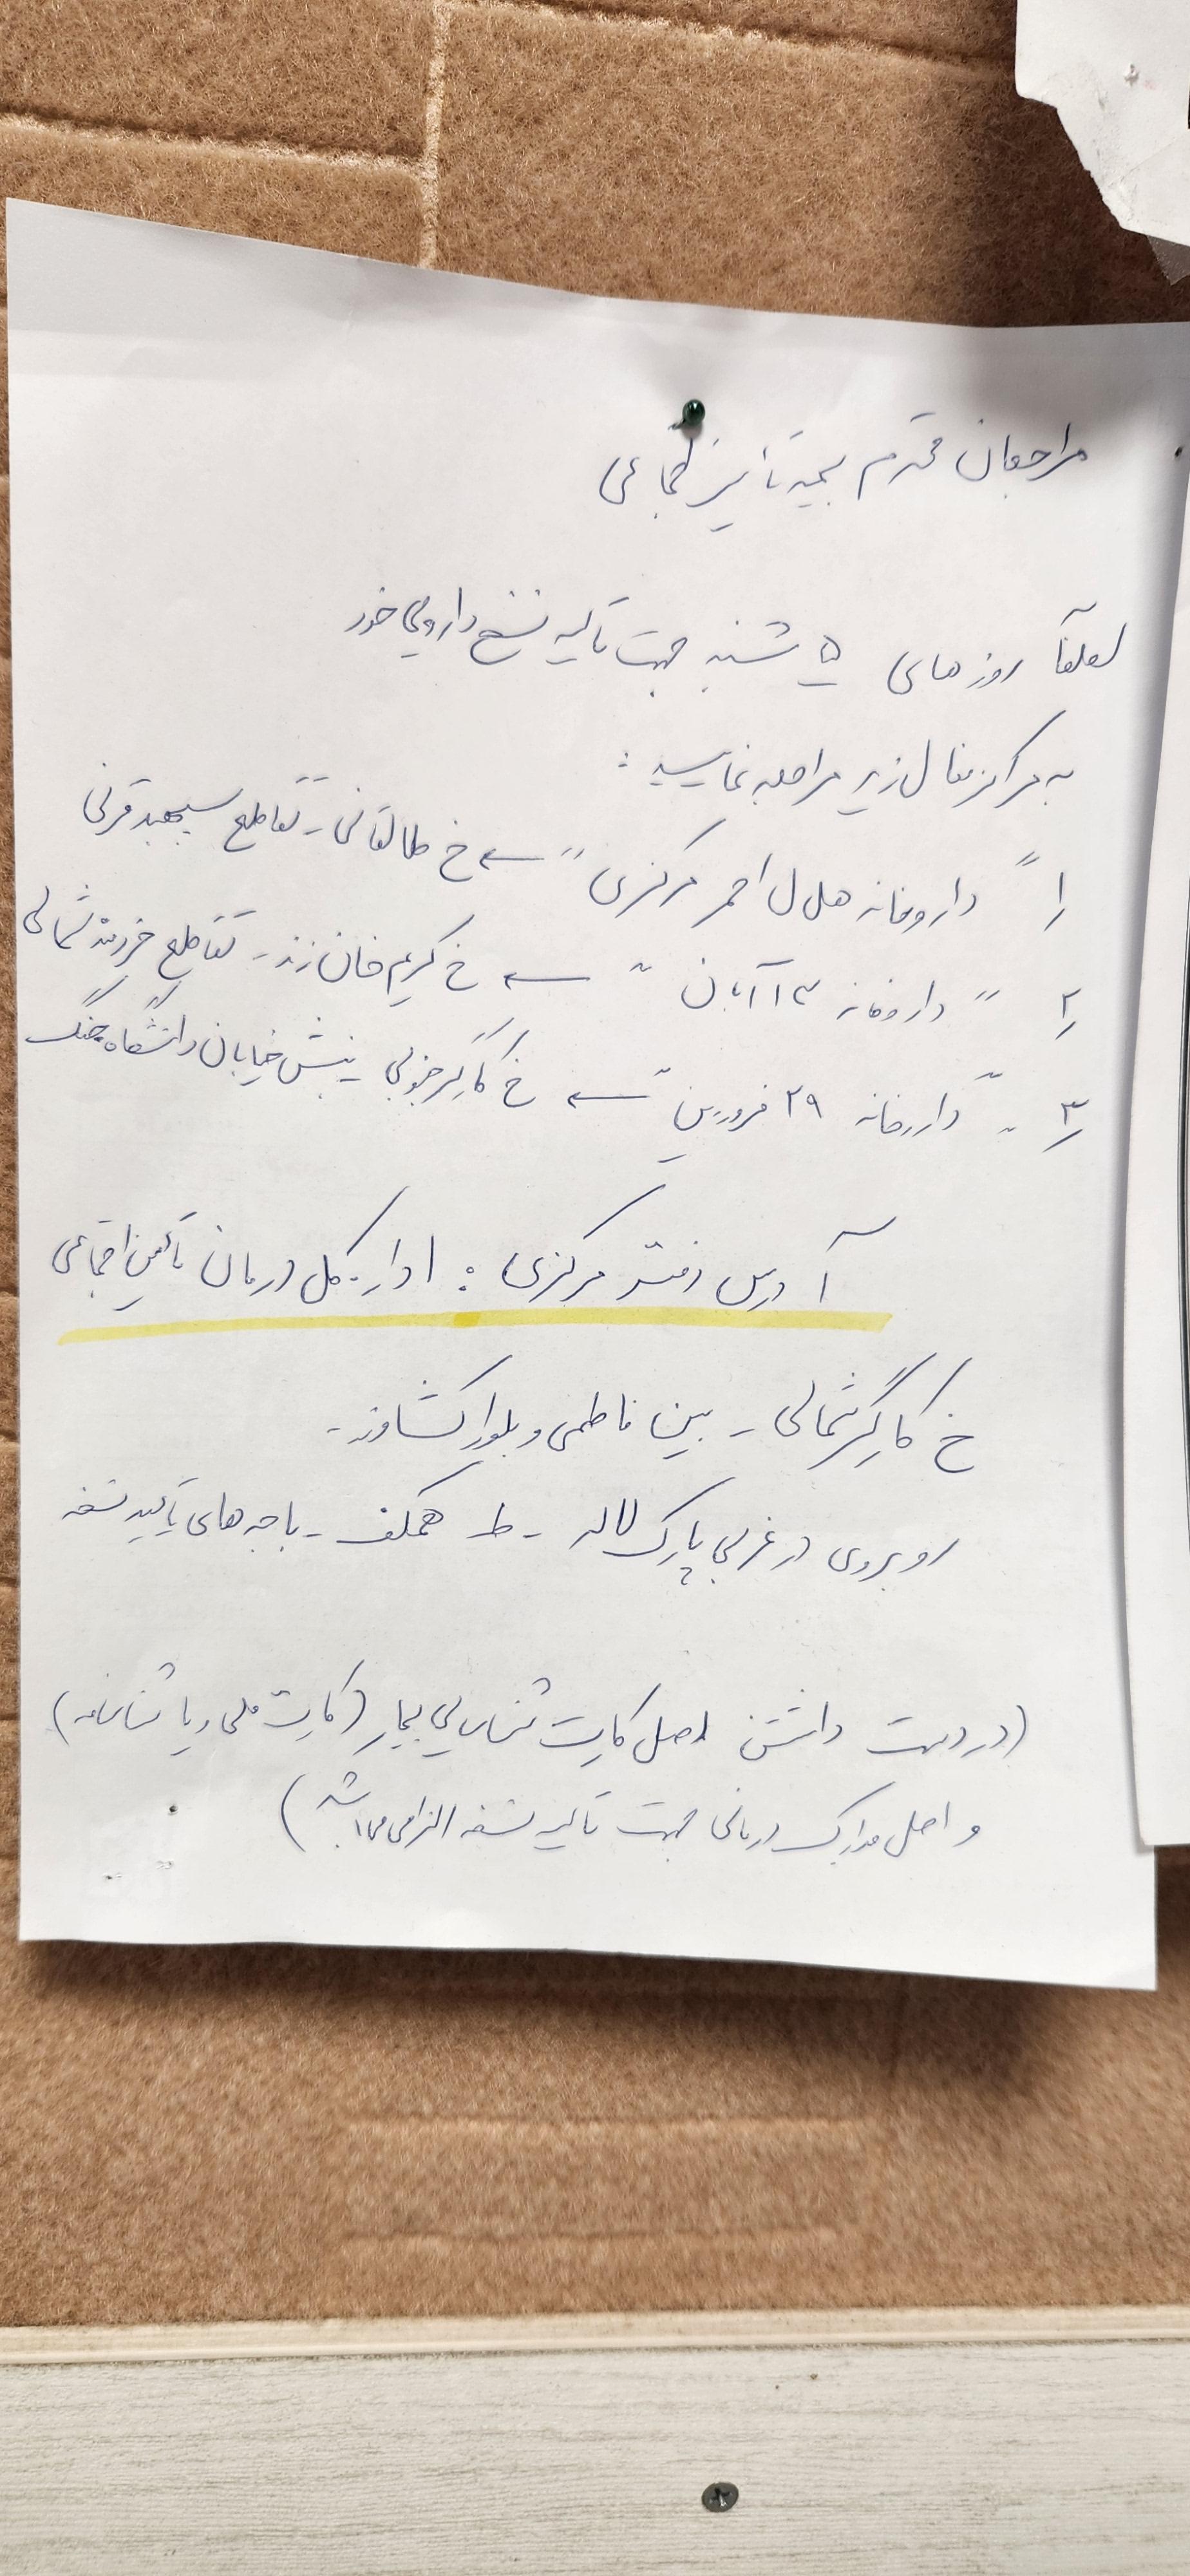 مراجعان محترم بیمه تأمین اجتماعی
لطفاً روزهای ۵ شنبه جهت تأیید نسخ دارویی خود
به مراکز فعال زیر مراجعه نمایید :
۱ " داروخانه هلال احمر مرکزی " ← خ طالقانی - تقاطع سپهبد قرنی
۲ " داروخانه ۱۳ آبان " ← خ کریم خان زند - تقاطع خردمند شمالی
۳ - " داروخانه ۲۹ فروردین " ← خ کارگر جنوبی - نبش خیابان دانشگاه جنگ
آدرس دفتر مرکزی : اداره کل درمان تأمین اجتماعی
خ کارگر شمالی - بین فاطمی و بلوار کشاورز -
روبروی در غربی پارک لاله - ط همکف - باجه های تأیید نسخه
(در دست داشتن اصل کارت شناسایی بیمار (کارت ملی و یا شناسنامه)
و اصل مدارک درمانی جهت تأیید نسخه الزامی می باشد)